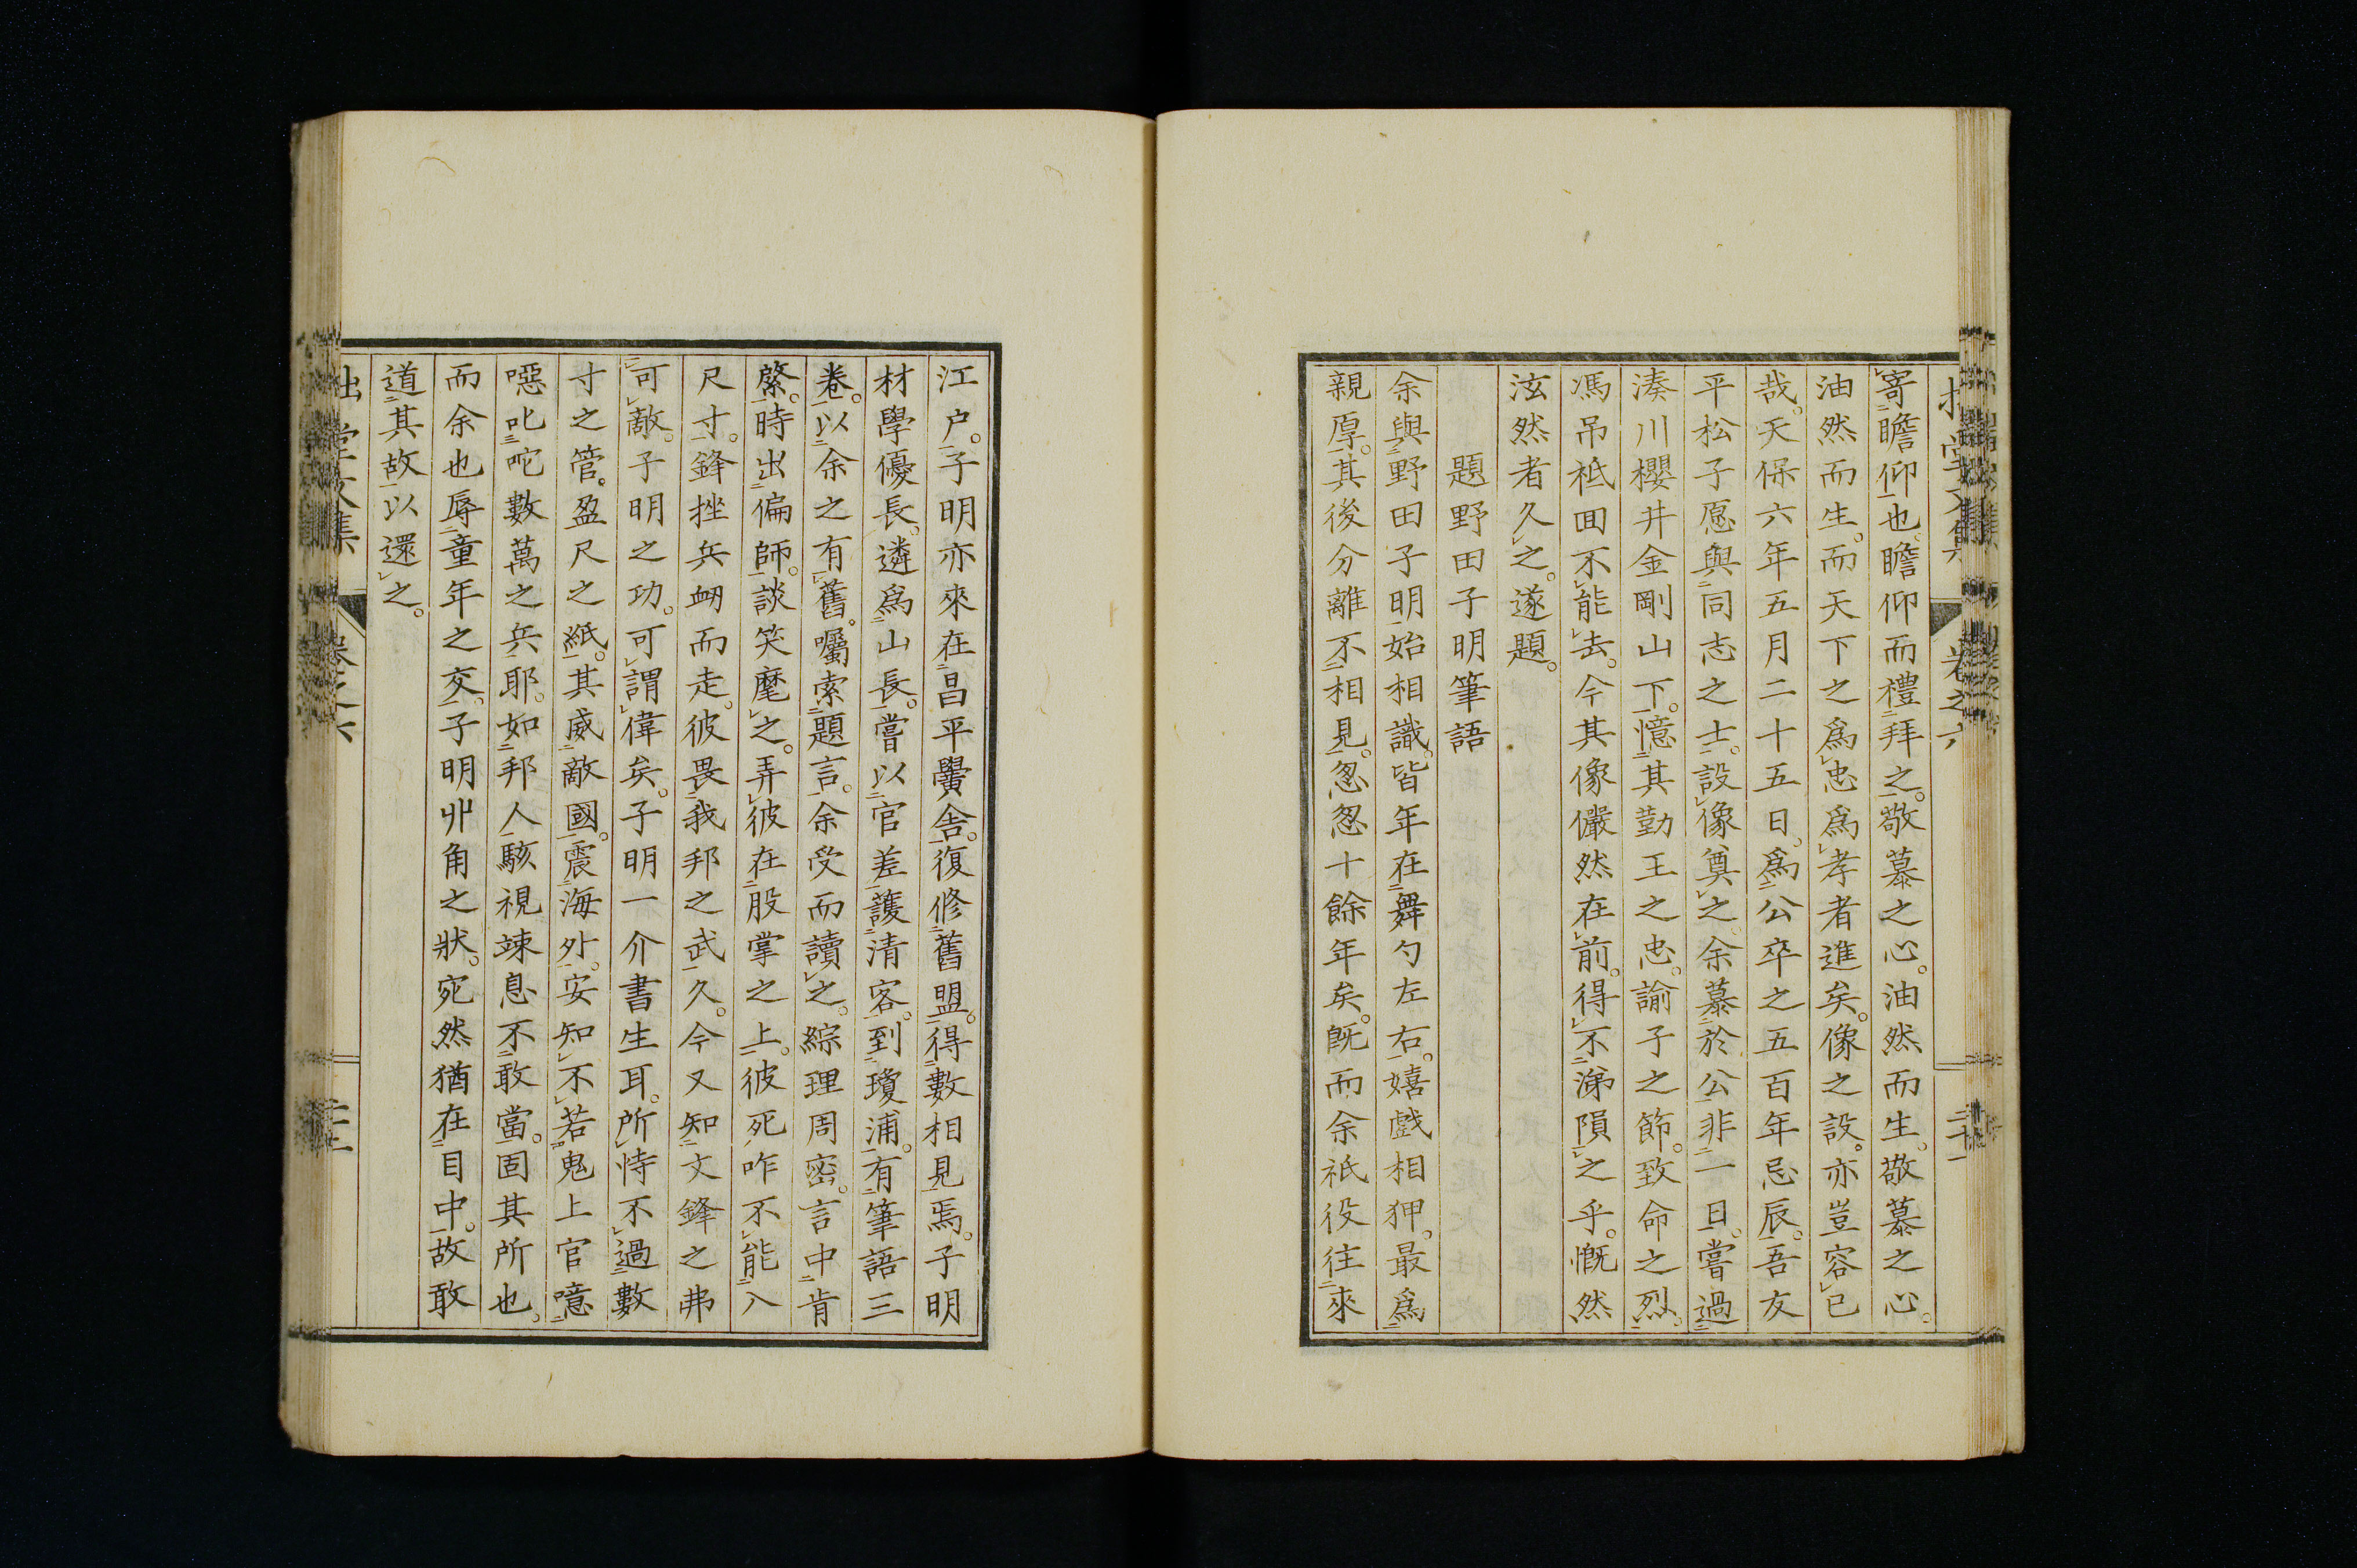 寄瞻仰也瞻仰而禮拜之。敬慕之心。油然而生。敬慕之心。
油然而生。而天下之爲忠爲孝者進矣。像之設。亦豈容已
哉。天保六年五月二十五日。爲公卒之五百年忌辰。吾友
平松子愿與同志之士。設像奠之。余慕於公非一日。嘗過
湊川櫻井金剛山下。憶其勤王之忠。諭子之節。致命之烈。
馮吊祗回不能去。今其像儼然在前。得不涕隕之乎。慨然
泫然者久之。遂題。
題野田子明筆語
余與野田子明始相識。皆年在舞勺左右。嬉戲相狎。最爲
親厚。其後分離不相見。忽忽十餘年矣。旣而余祇役往來
江户。子明亦來在昌平黌舍。復修舊盟。得數相見焉。子明
材學優長。遴爲山長。嘗以官差護清客。到瓊浦。有筆語三
卷。以余之有舊。囑索題言。余受而讀之。綜理周密。言中肯
綮。時出偏師。談笑麾之。弄彼在股掌之上。彼死咋不能入
尺寸。鋒挫兵衂而走。彼畏我邦之武久。今又知文鋒之弗
可敵。子明之功。可謂偉矣。子明一介書生耳。所恃不過數
寸之管。盈尺之紙。其威敵國。震海外。安知不若鬼上官噫
噁叱咜數萬之兵耶。如邦人駭視竦息不敢當。固其所也。
而余也辱童年之交。子明丱角之狀。宛然猶在目中。故敢
道其故以還之。
拙堂文集 卷之六 二十一